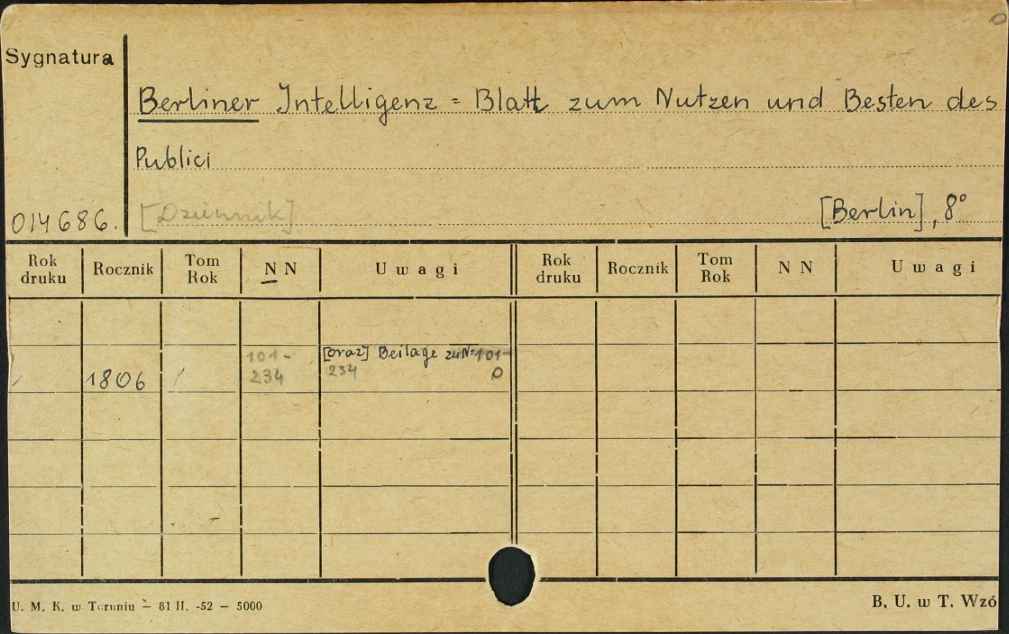 Sygnatura
Berliner Intelligenz = Blatt zum Nutzen und Besten des
Publici
014686. [Dziennik] [Berlin], 8°
Rok druku Rocznik Tom Rok NN Uwagi Rok druku Rocznik Tom Rok NN Uwagi
[oraz] Beilage zu N= 101-
1806 101-234 234
U. M. K. w Toruniu – 81 II. -52 – 5000
B. U. w T. Wzó